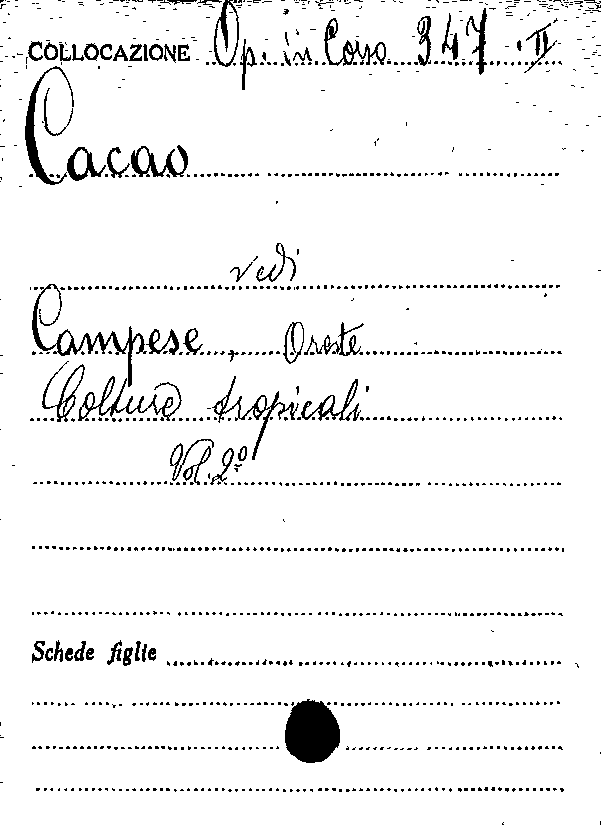 COLLOCAZIONE Op. in Corso 347. II
Cacao
vedi
Campese, Oreste
Colture tropicali
Vol. 2º
Schede figlie